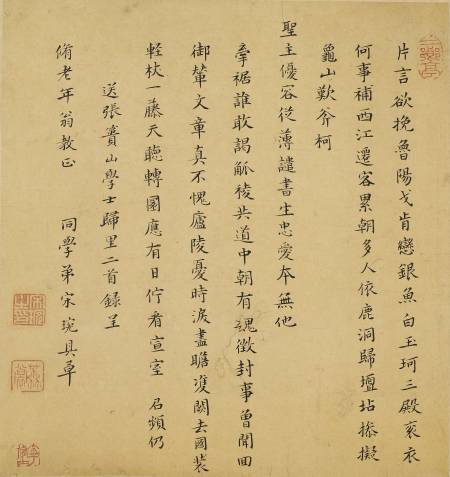 片言欲挽魯陽戈肯戀銀魚白玉珂三殿袞衣
何事補西江遷客累朝多人依鹿洞歸壇坫操擬
龜山歎斧柯
聖主優容從薄譴書生忠愛本無他
牽裾誰敢謁觚稜共道中朝有魏徵封事曾聞回
御輦文章真不愧廬陵憂時淚盡瞻雙闕去國裝
輕杖一藤天聽轉圜應有日佇看宣室 召頻仍
送張簣山學士歸里二首錄呈
脩老年翁教正 同學弟宋琬具草